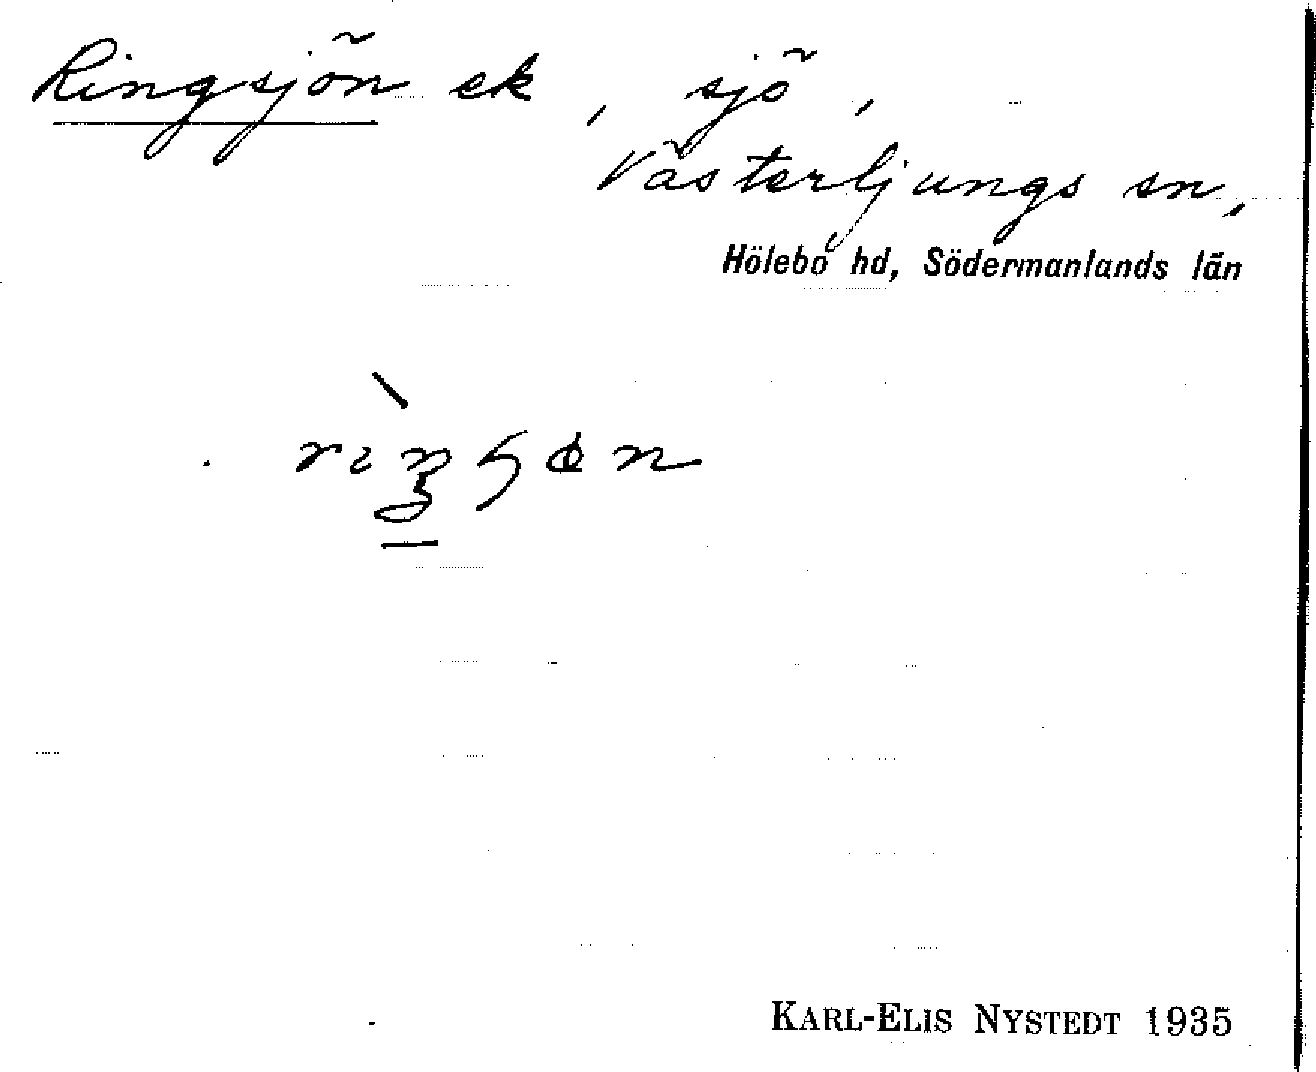 Ringsjön ek, sjö,
Västerljungs sn,
Hölebo hd, Södermanlands län
KARL-ELIS NYSTEDT 1935